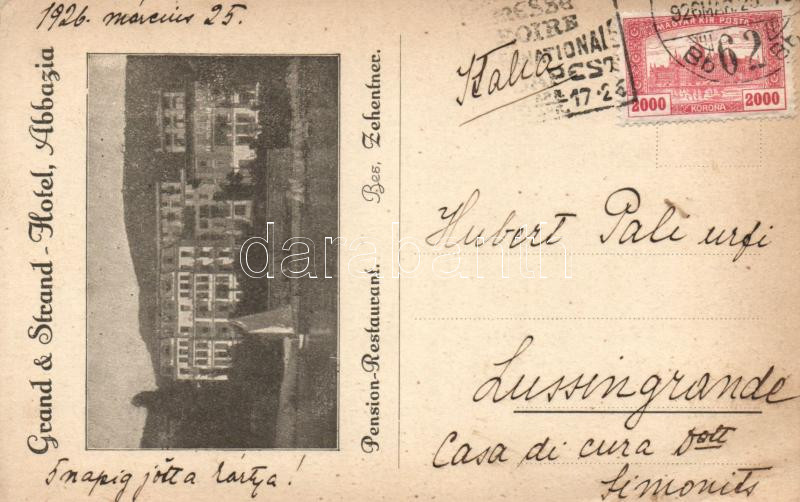 1926. március 25.
Grand & Strand - Hotel, Abbazia
Pension-Restaurant. Bes. Zehentner.
5 napig jött a kártya!
FOIRE
NATIONALE
PEST
17-26
926 MÁR. 25
MAGYAR KIR. POSTA
62
2000 KORONA 2000
Italia
Hubert Pali urfi
Lussingrande
Casa di cura Dott
Simonits
darabanth